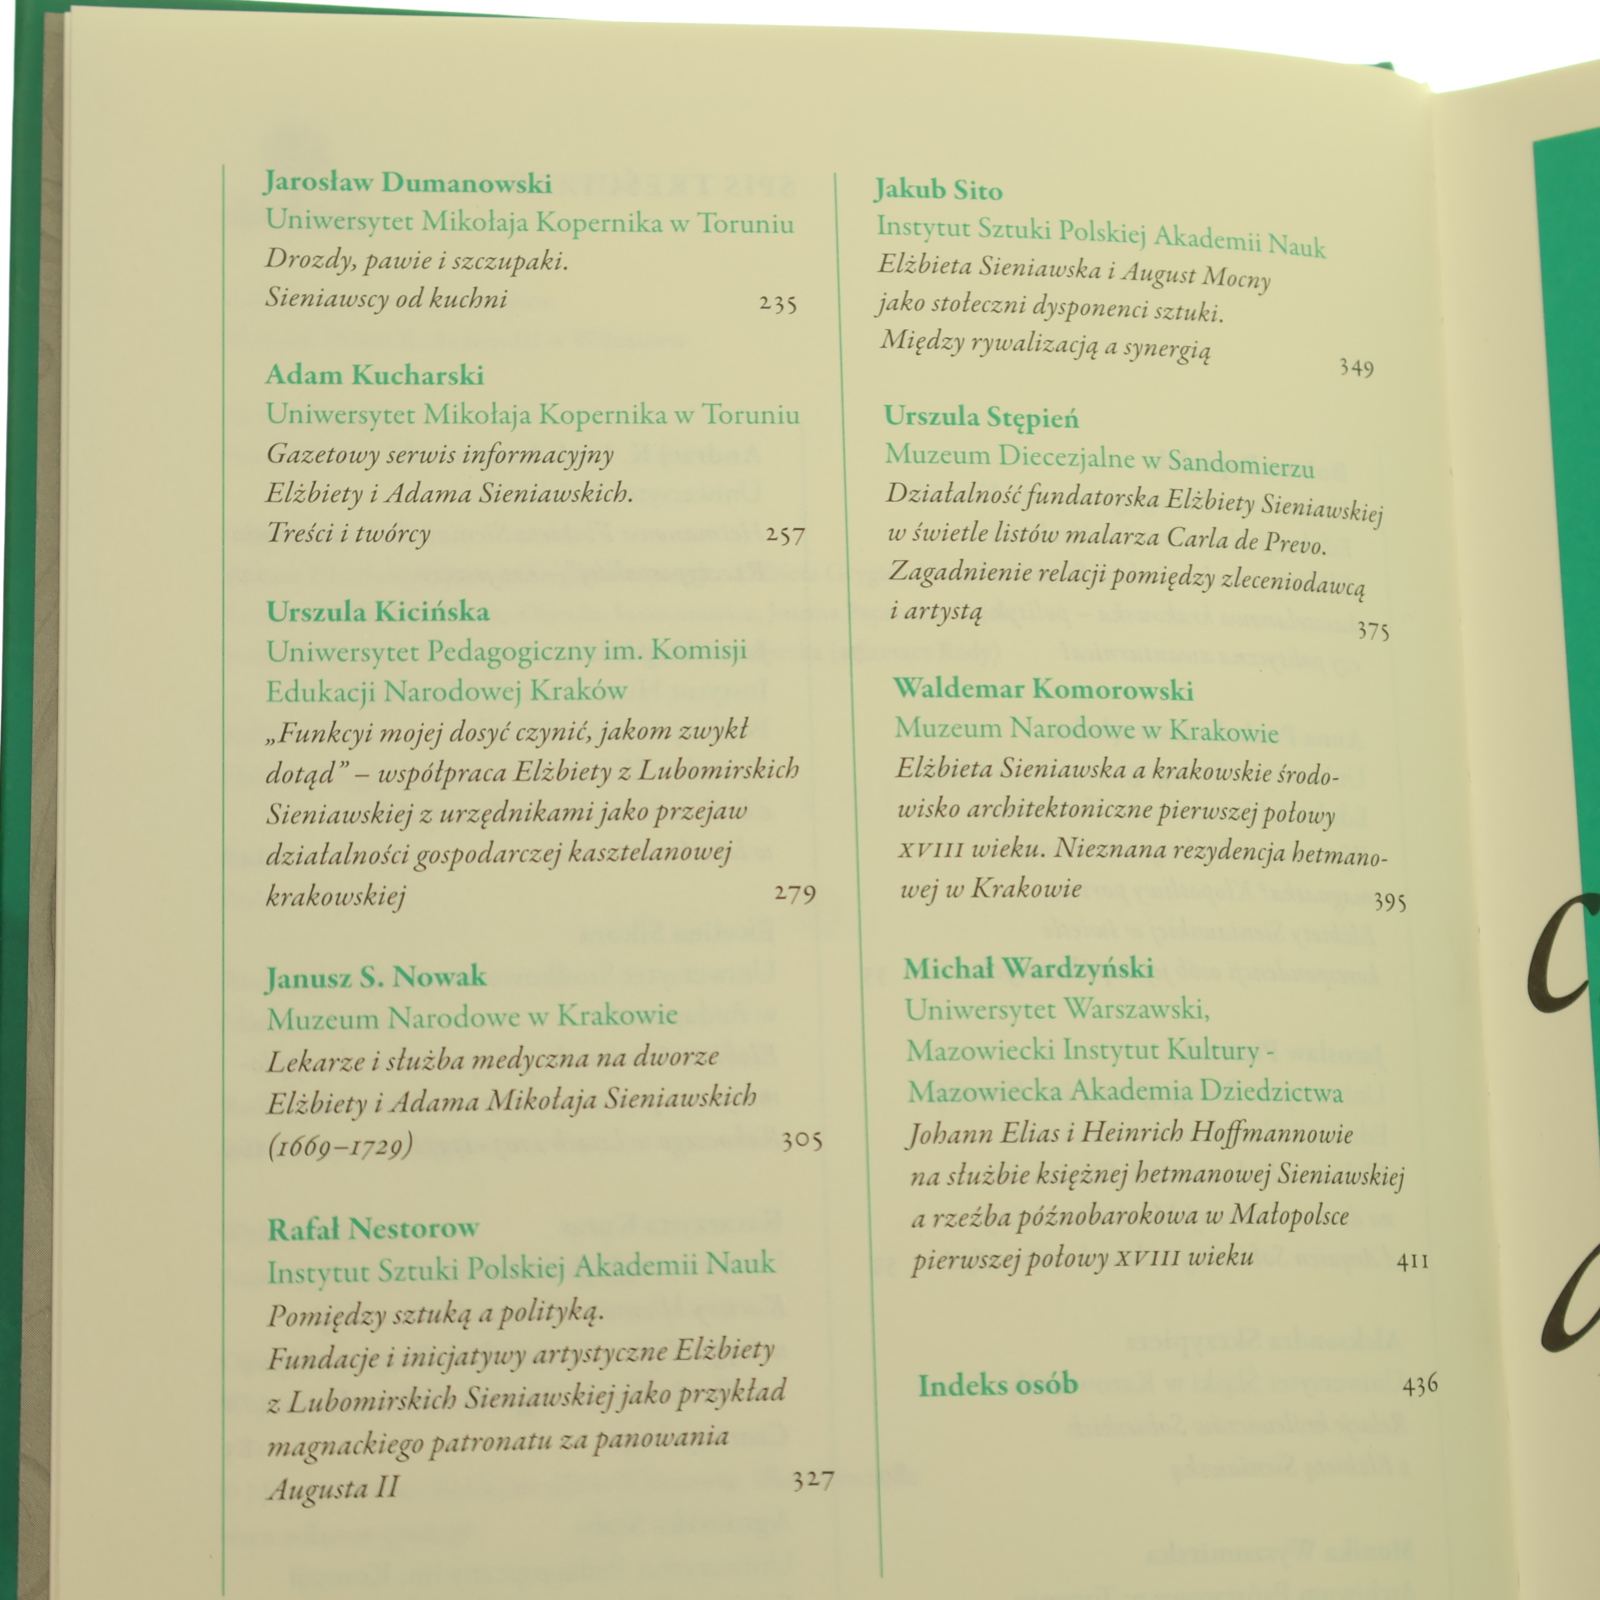 Jarosław Dumanowski
Uniwersytet Mikołaja Kopernika w Toruniu
Drozdy, pawie i szczupaki.
Sieniawscy od kuchni 235
Adam Kucharski
Uniwersytet Mikołaja Kopernika w Toruniu
Gazetowy serwis informacyjny
Elżbiety i Adama Sieniawskich.
Treści i twórcy 257
Urszula Kicińska
Uniwersytet Pedagogiczny im. Komisji
Edukacji Narodowej Kraków
„Funkcyi mojej dosyć czynić, jakom zwykł
dotąd” – współpraca Elżbiety z Lubomirskich
Sieniawskiej z urzędnikami jako przejaw
działalności gospodarczej kasztelanowej
krakowskiej 279
Janusz S. Nowak
Muzeum Narodowe w Krakowie
Lekarze i służba medyczna na dworze
Elżbiety i Adama Mikołaja Sieniawskich
(1669–1729) 305
Rafał Nestorow
Instytut Sztuki Polskiej Akademii Nauk
Pomiędzy sztuką a polityką.
Fundacje i inicjatywy artystyczne Elżbiety
z Lubomirskich Sieniawskiej jako przykład
magnackiego patronatu za panowania
Augusta II 327
Jakub Sito
Instytut Sztuki Polskiej Akademii Nauk
Elżbieta Sieniawska i August Mocny
jako stołeczni dysponenci sztuki.
Między rywalizacją a synergią 349
Urszula Stępień
Muzeum Diecezjalne w Sandomierzu
Działalność fundatorska Elżbiety Sieniawskiej
w świetle listów malarza Carla de Prevo.
Zagadnienie relacji pomiędzy zleceniodawcą
i artystą 375
Waldemar Komorowski
Muzeum Narodowe w Krakowie
Elżbieta Sieniawska a krakowskie środo-
wisko architektoniczne pierwszej połowy
XVIII wieku. Nieznana rezydencja hetmano-
wej w Krakowie 395
Michał Wardzyński
Uniwersytet Warszawski,
Mazowiecki Instytut Kultury -
Mazowiecka Akademia Dziedzictwa
Johann Elias i Heinrich Hoffmannowie
na służbie księżnej hetmanowej Sieniawskiej
a rzeźba późnobarokowa w Małopolsce
pierwszej połowy XVIII wieku 411
Indeks osób 436